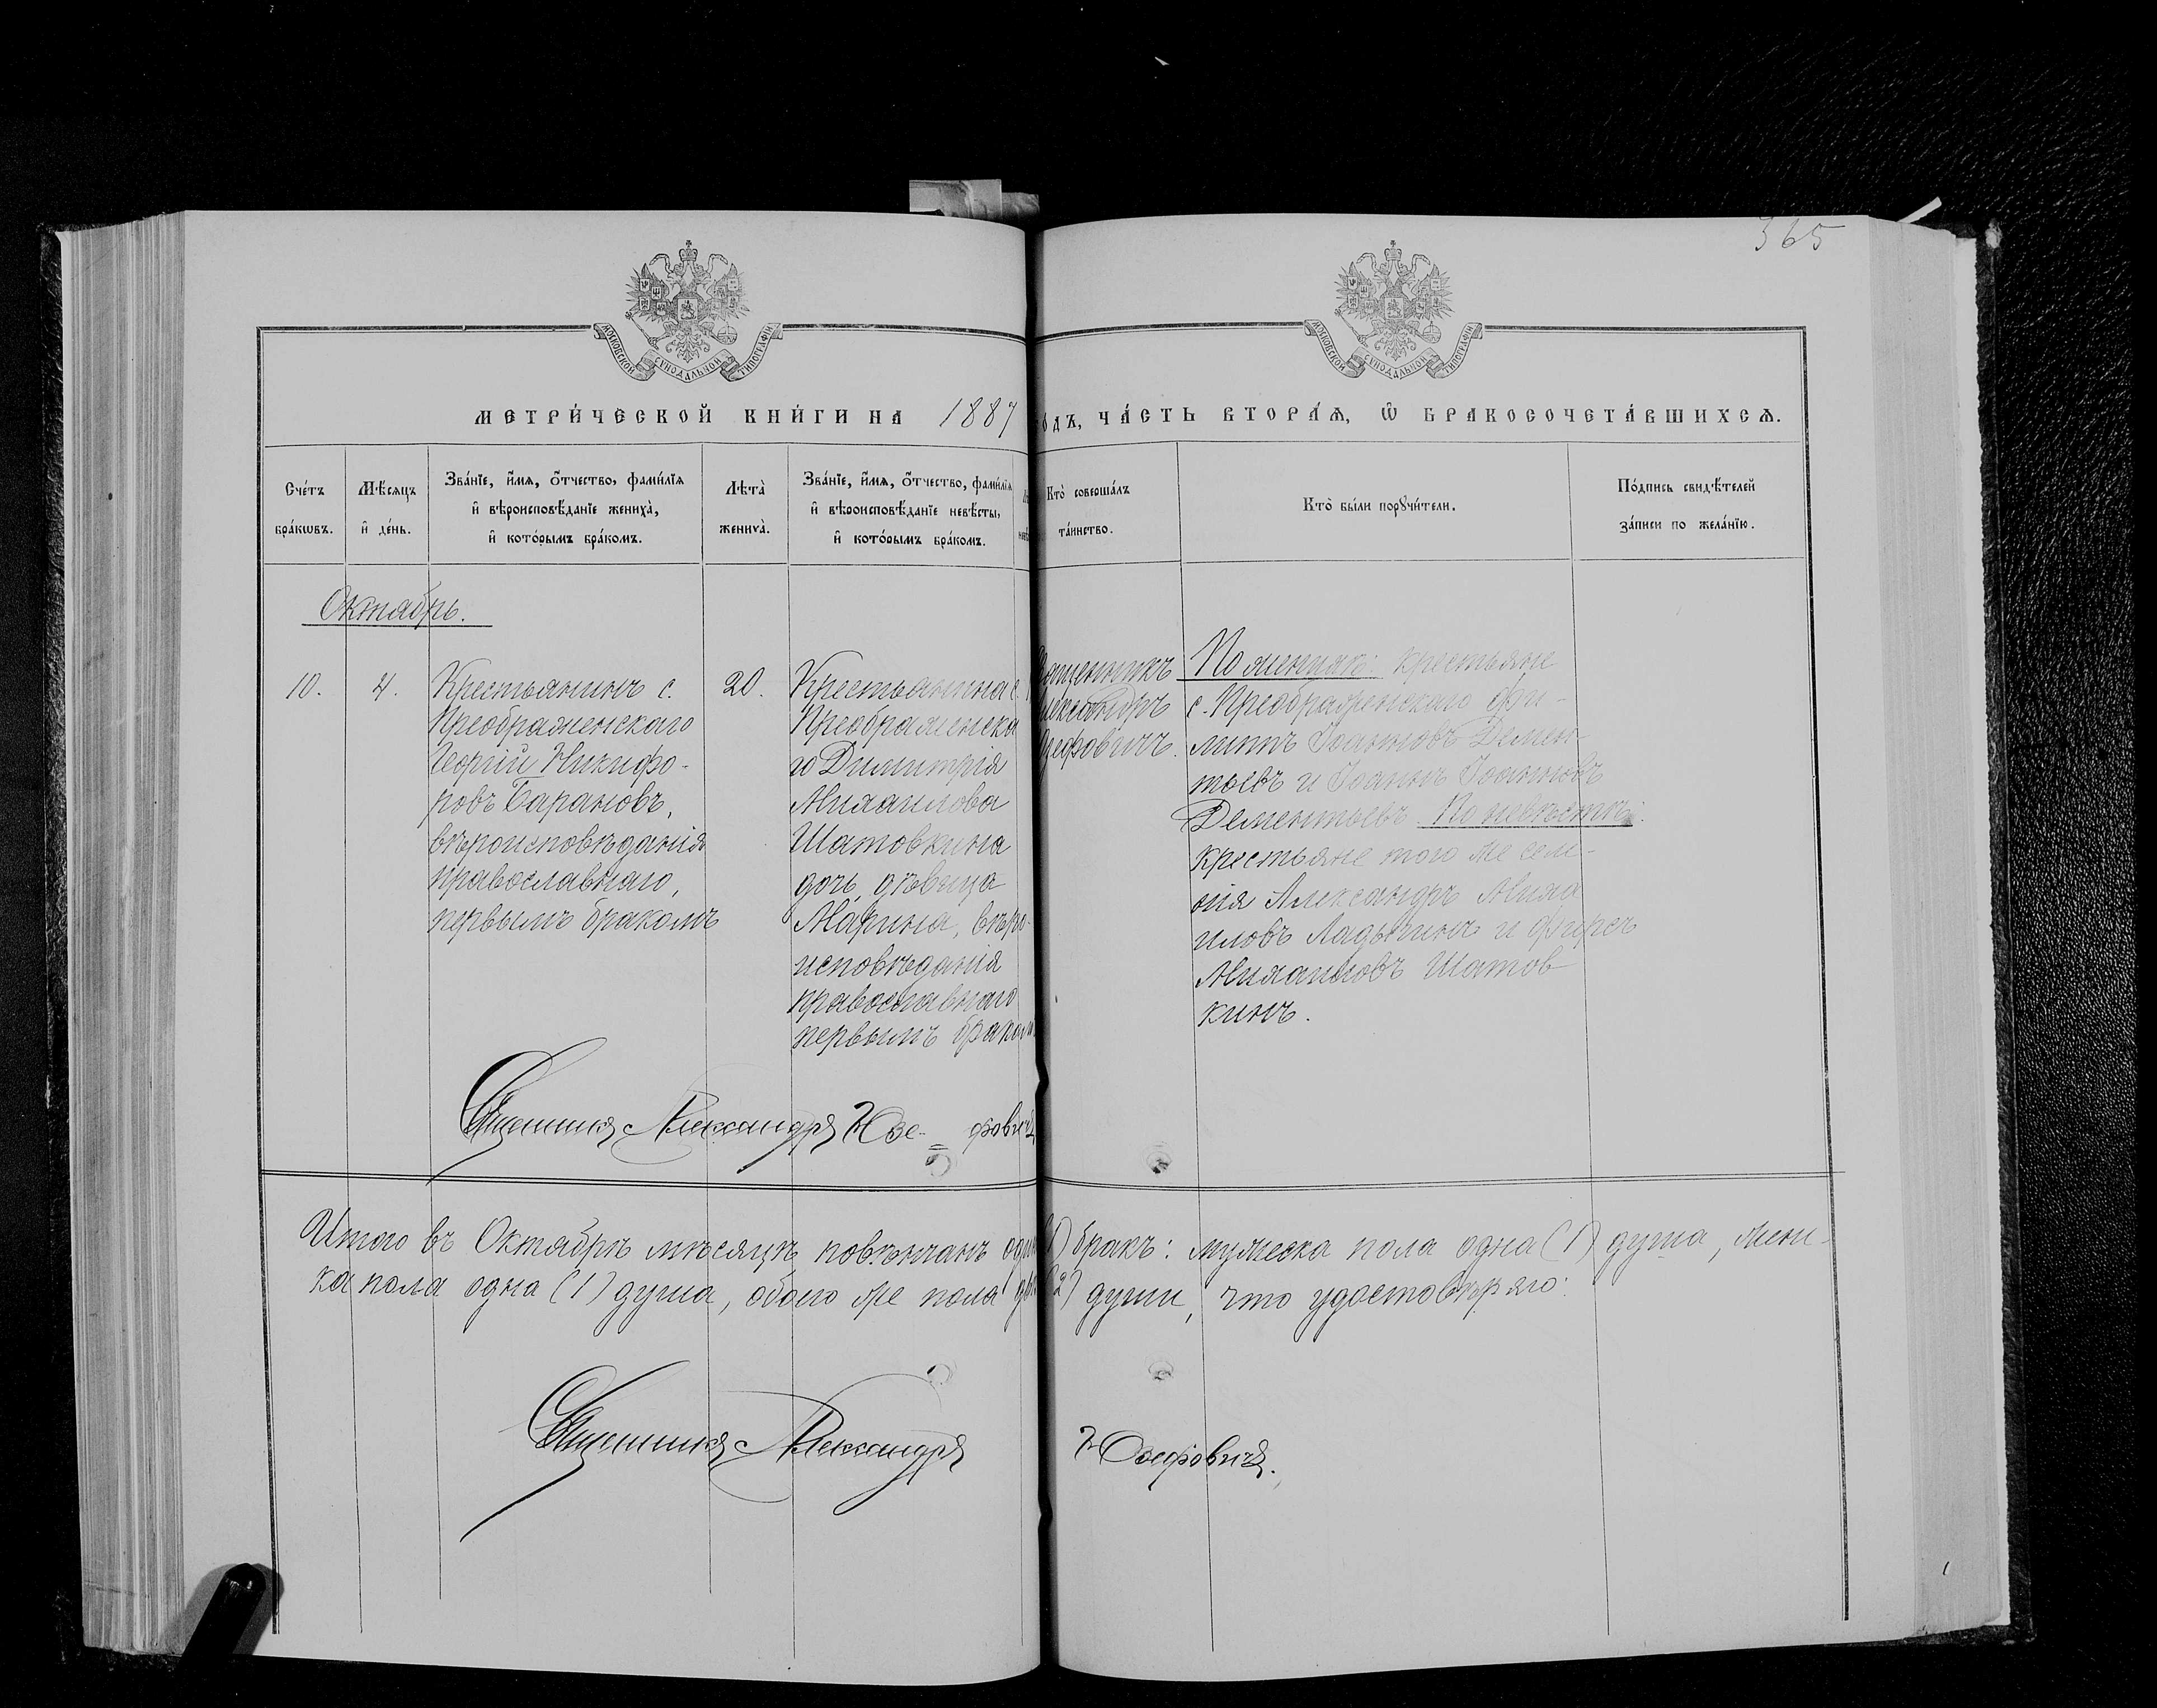 365
МОСКОВСКОЙ СѴНОДАЛЬНОЙ ТИПОГРАФІИ
МОСКОВСКОЙ СѴНОДАЛЬНОЙ ТИПОГРАФІИ
МЕТРИ́ЧЕСКОЙ КНИ́ГИ НА 1887
ОДЪ, ЧА́СТЬ ВТОРА́Ѧ, Ѿ БРАКОСОЧЕТА́ВШИХСѦ.
Сче́тъ бра́кѡвъ.
Мѣ́сяцъ и҆ де́нь.
Зва́нїе, и҆́мѧ, ѻ҆́тчество, фами́лїѧ
и҆ вѣроисповѣ́данїе жениха̀,
и҆ кото́рымъ бра́комъ.
Лѣта̀ жениха̀.
Зва́нїе, и҆́мѧ, ѻ҆́тчество, фами́лїѧ
и҆ вѣроисповѣ́данїе невѣ́сты,
и҆ кото́рымъ бра́комъ.
Кто̀ соверша́лъ
та́инство.
Кто̀ бы́ли порꙋчи́тели.
По́дпись свидѣ́телей
за́писи по жела́нїю.
Октябрь.
10.
4.
Крестьянинъ с.
Преображенскаго
Георгій Никифо-
ровъ Барановъ,
вѣроисповѣданія
православнаго,
первымъ бракомъ
20.
Крестьянина с.
Преображенска
го Димитрія
Михаилова
Шатовкина
дочь, дѣвица
Марина, вѣро-
исповѣданія
православнаго
первымъ браком
ященникъ
лександръ
зефовичъ.
По женихѣ: крестьяне
с. Преображенскаго Фи-
липпъ Іоанновъ Демен-
тьевъ и Іоаннъ Іоанновъ
Дементьевъ. По невѣстѣ:
крестьяне того же селе-
нія Александръ Миха
иловъ Ладыгинъ и Фирсъ
Михаиловъ Шатов
кинъ.
Священникъ Александръ Юзе= фовичъ
Итого въ Октябрѣ мѣсяцѣ повѣнчанъ один (1) бракъ: мужеска пола одна (1) душа, жен-
ска пола одна (1) душа, обоего же пола дв (2) души, что удостовѣряю:
Священникъ Александръ Юзефовичъ.